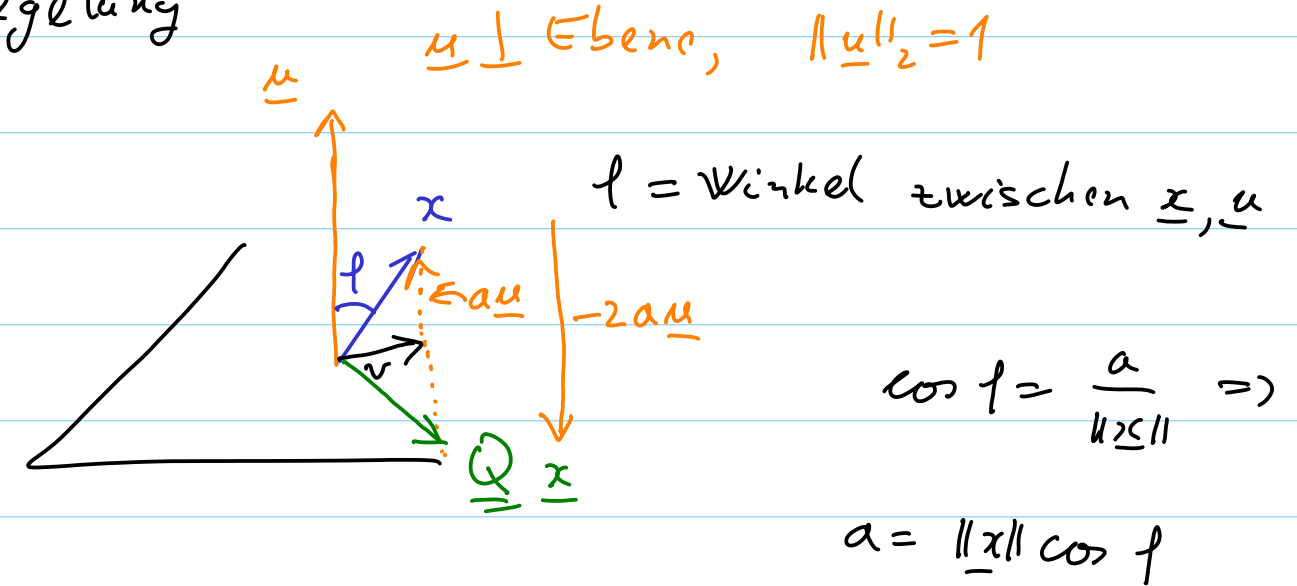 gelung
u ⊥ Ebene, ||u||₂ = 1
u
φ = Winkel zwischen x, u
x
φ
← au
-2au
v
cos φ = a / ||x|| =>
Q x
a = ||x|| cos φ